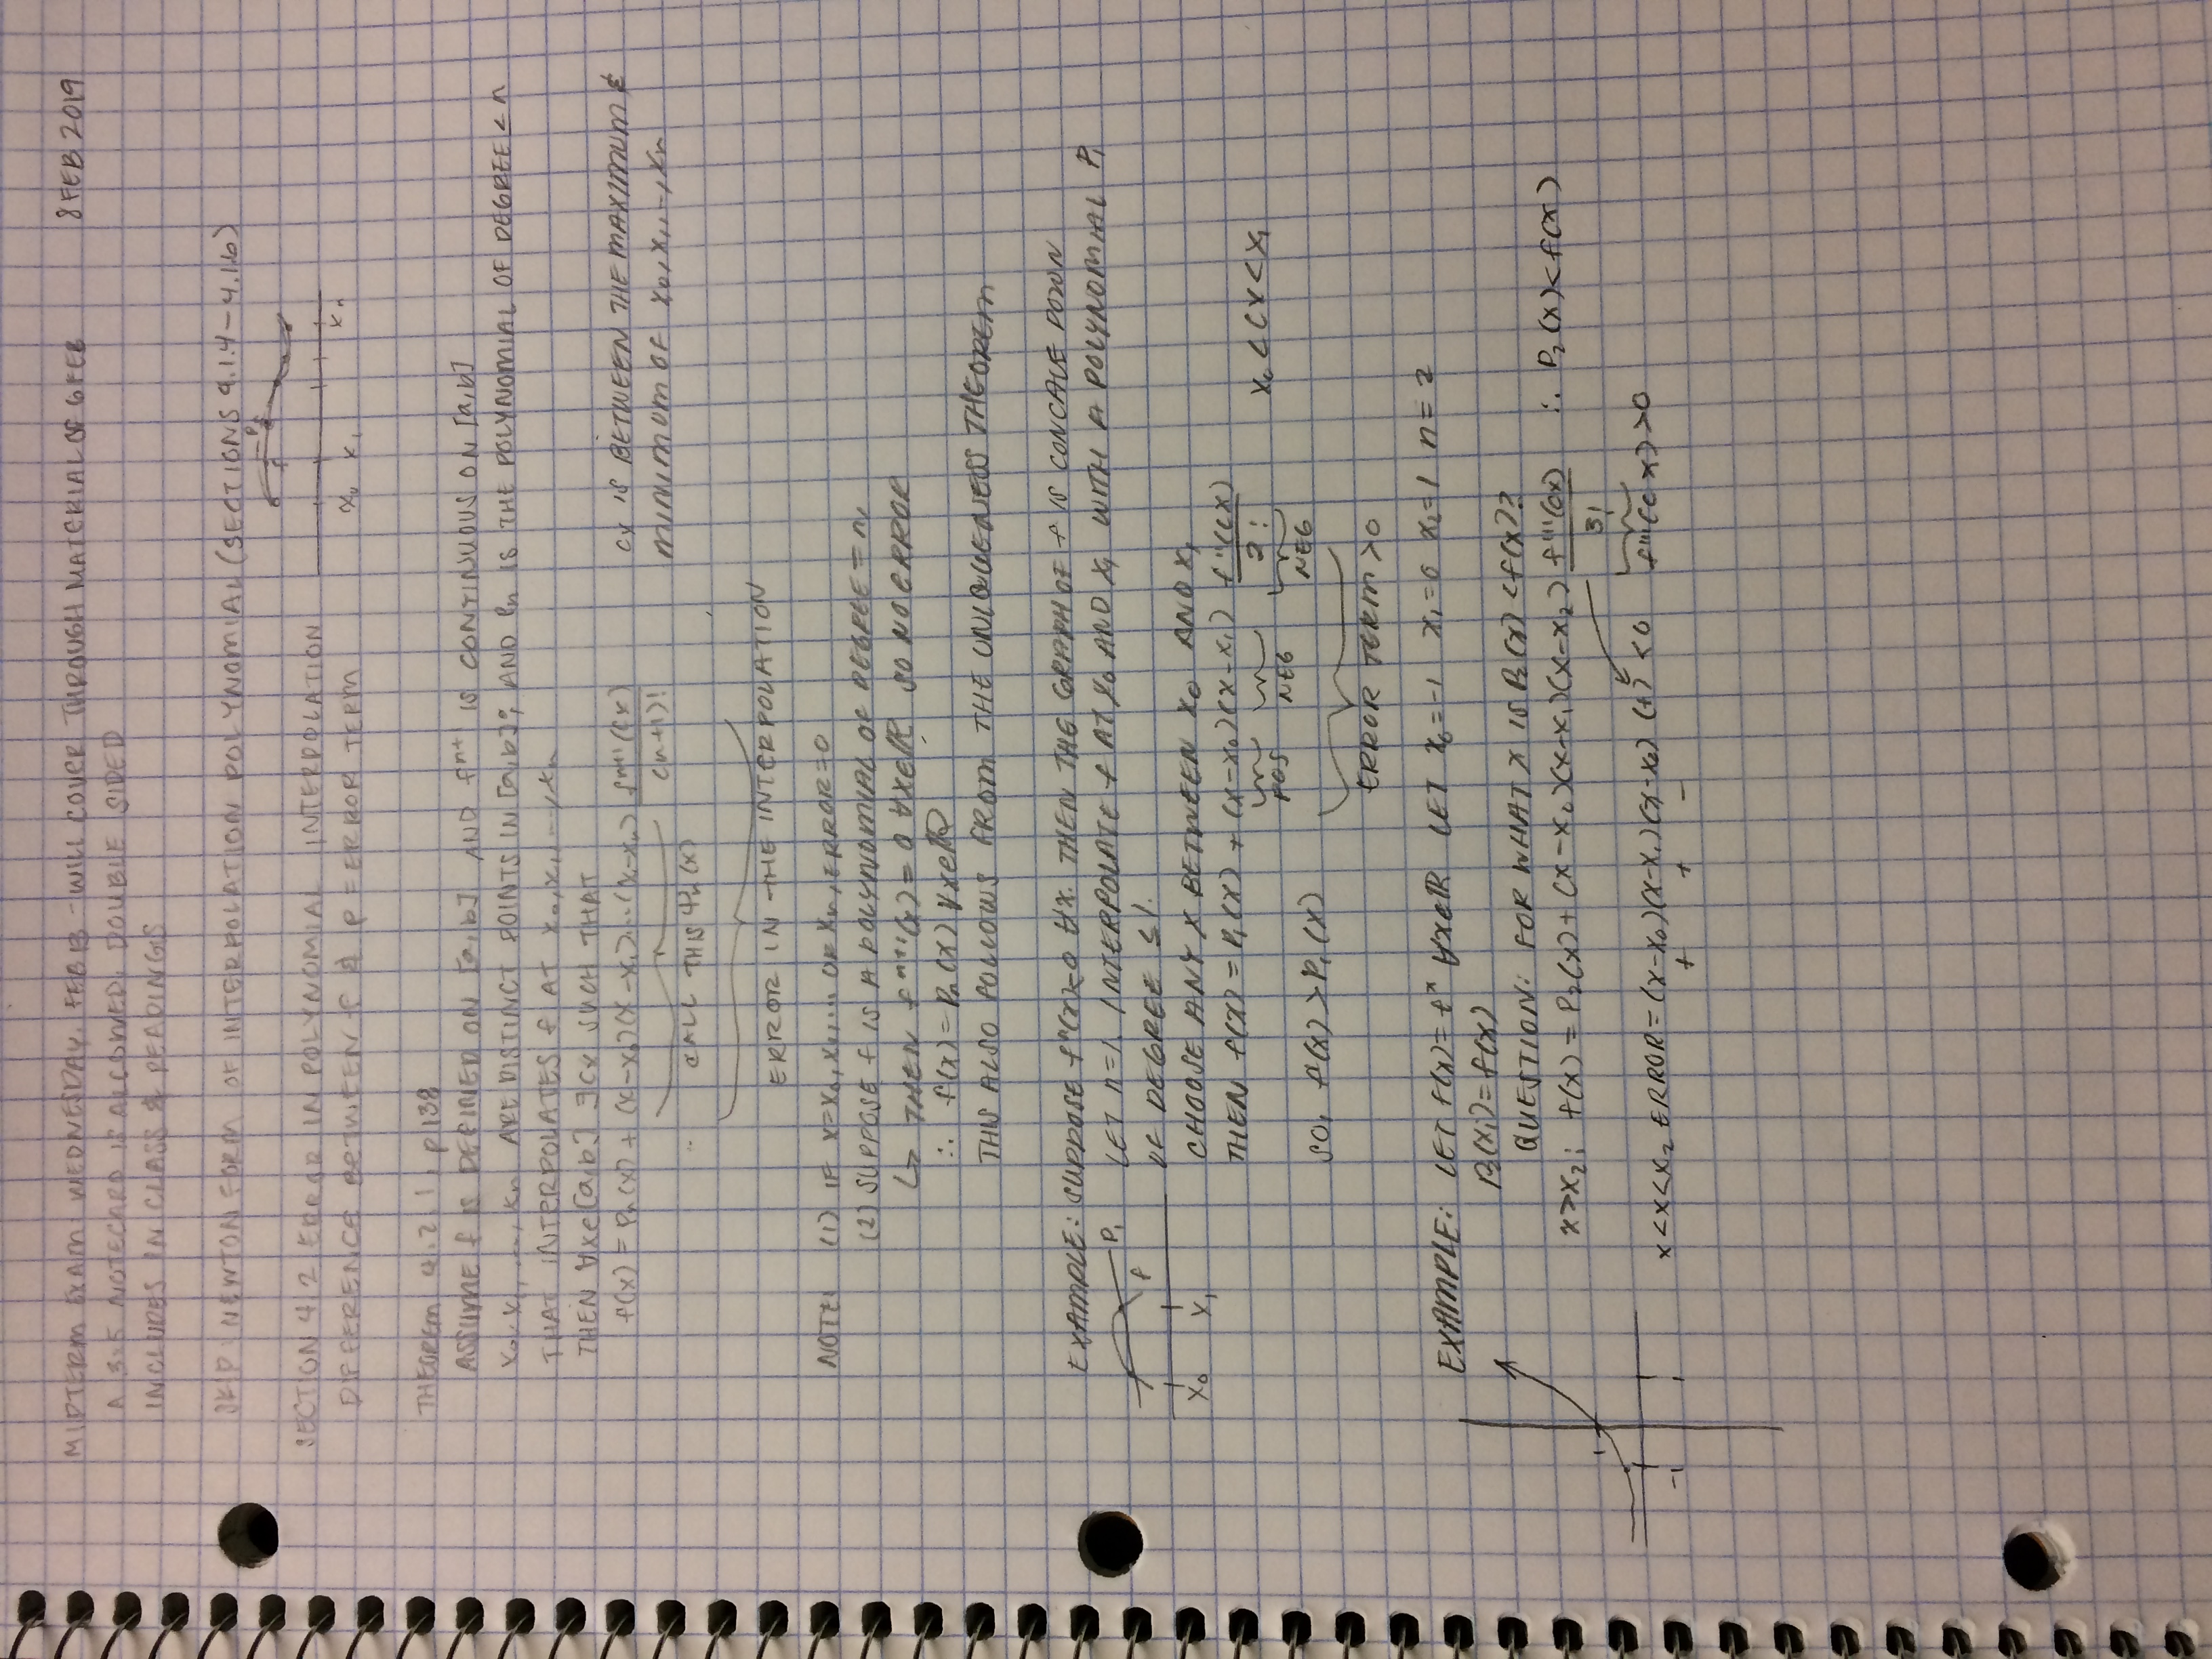 MIDTERM EXAM WEDNESDAY, FEB 13 - WILL COVER THROUGH MATERIAL OF 6 FEB 8 FEB 2019
A 3x5 NOTECARD IS ALLOWED, DOUBLE SIDED
INCLUDES IN CLASS & READINGS
SKIP: NEWTON FORM OF INTERPOLATION POLYNOMIAL (SECTIONS 4.1.4 - 4.1.6)
P
f
SECTION 4.2 ERROR IN POLYNOMIAL INTERPOLATION
x₀ x₁ xₙ
DIFFERENCE BETWEEN f & p = ERROR TERM
THEOREM 4.2.1, p 138
ASSUME f IS DEFINED ON [a,b] AND fⁿ⁺¹ IS CONTINUOUS ON [a,b]
x₀, x₁, ..., xₙ ARE DISTINCT POINTS IN [a,b]; AND Pₙ IS THE POLYNOMIAL OF DEGREE ≤ n
THAT INTERPOLATES f AT x₀, x₁, ..., xₙ
THEN ∀x∈[a,b] ∃cx SUCH THAT
f(x) = Pₙ(x) + (x-x₀)(x-x₁)...(x-xₙ) fⁿ⁺¹(cx)/(n+1)! cx IS BETWEEN THE MAXIMUM &
MINIMUM OF x₀, x₁, .., xₙ
CALL THIS Ψₙ(x)
ERROR IN THE INTERPOLATION
NOTE: (1) IF x=x₀, x₁, ... OR xₙ, ERROR=0
(2) SUPPOSE f IS A POLYNOMIAL OF DEGREE = n,
↳ THEN fⁿ⁺¹(x) = 0 ∀x∈ℝ SO NO ERROR
∴ f(x) = Pₙ(x) ∀x∈ℝ
THIS ALSO FOLLOWS FROM THE UNIQUENESS THEOREM
EXAMPLE: SUPPOSE f''(x)<0 ∀x. THEN THE GRAPH OF f IS CONCAVE DOWN
P₁
f
x₀ x₁
LET n=1. INTERPOLATE f AT x₀ AND x₁ WITH A POLYNOMIAL P₁
OF DEGREE ≤ 1.
CHOOSE ANY x BETWEEN x₀ AND x₁
THEN f(x) = P₁(x) + (x-x₀)(x-x₁) f''(cx)/2! x₀ < cx < x₁
POS NEG NEG
SO, f(x) > P₁(x)
ERROR TERM > 0
EXAMPLE: LET f(x) = eˣ ∀x∈ℝ LET x₀=-1 x₁=0 x₂=1 n=2
P₂(xᵢ) = f(x)
QUESTION: FOR WHAT x IS P₂(x) < f(x)?
x>x₂: f(x) = P₂(x) + (x-x₀)(x-x₁)(x-x₂) f'''(cx)/3! ∴ P₂(x) < f(x)
x<x<x₂ ERROR = (x-x₀)(x-x₁)(x-x₂) (+) < 0 f'''(cx) > 0
+ + -
-1 1